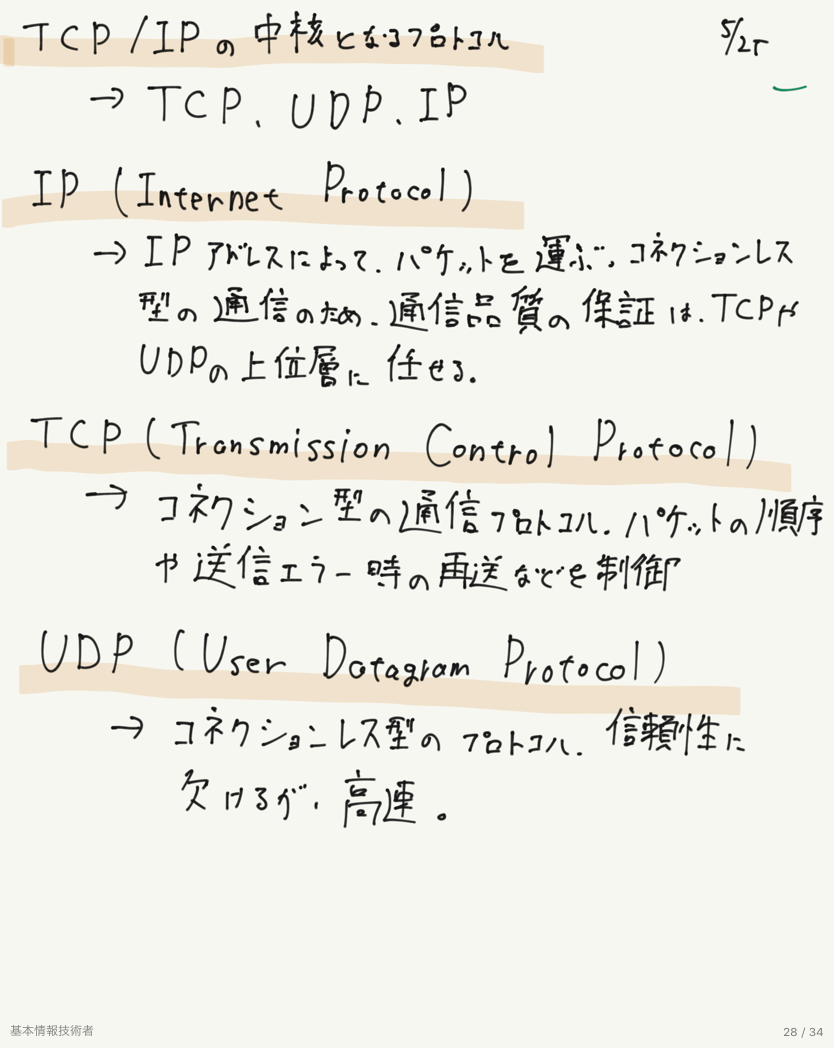 TCP/IPの中核となるプロトコル
5/25
→ TCP、UDP、IP
IP (Internet Protocol)
→ IPアドレスによって、パケットを運ぶ。コネクションレス
型の通信のため、通信品質の保証は、TCPや
UDPの上位層に任せる。
TCP (Transmission Control Protocol)
→ コネクション型の通信プロトコル。パケットの順序
や送信エラー時の再送などを制御
UDP (User Datagram Protocol)
→ コネクションレス型のプロトコル。信頼性に
欠けるが、高速。
基本情報技術者
28 / 34